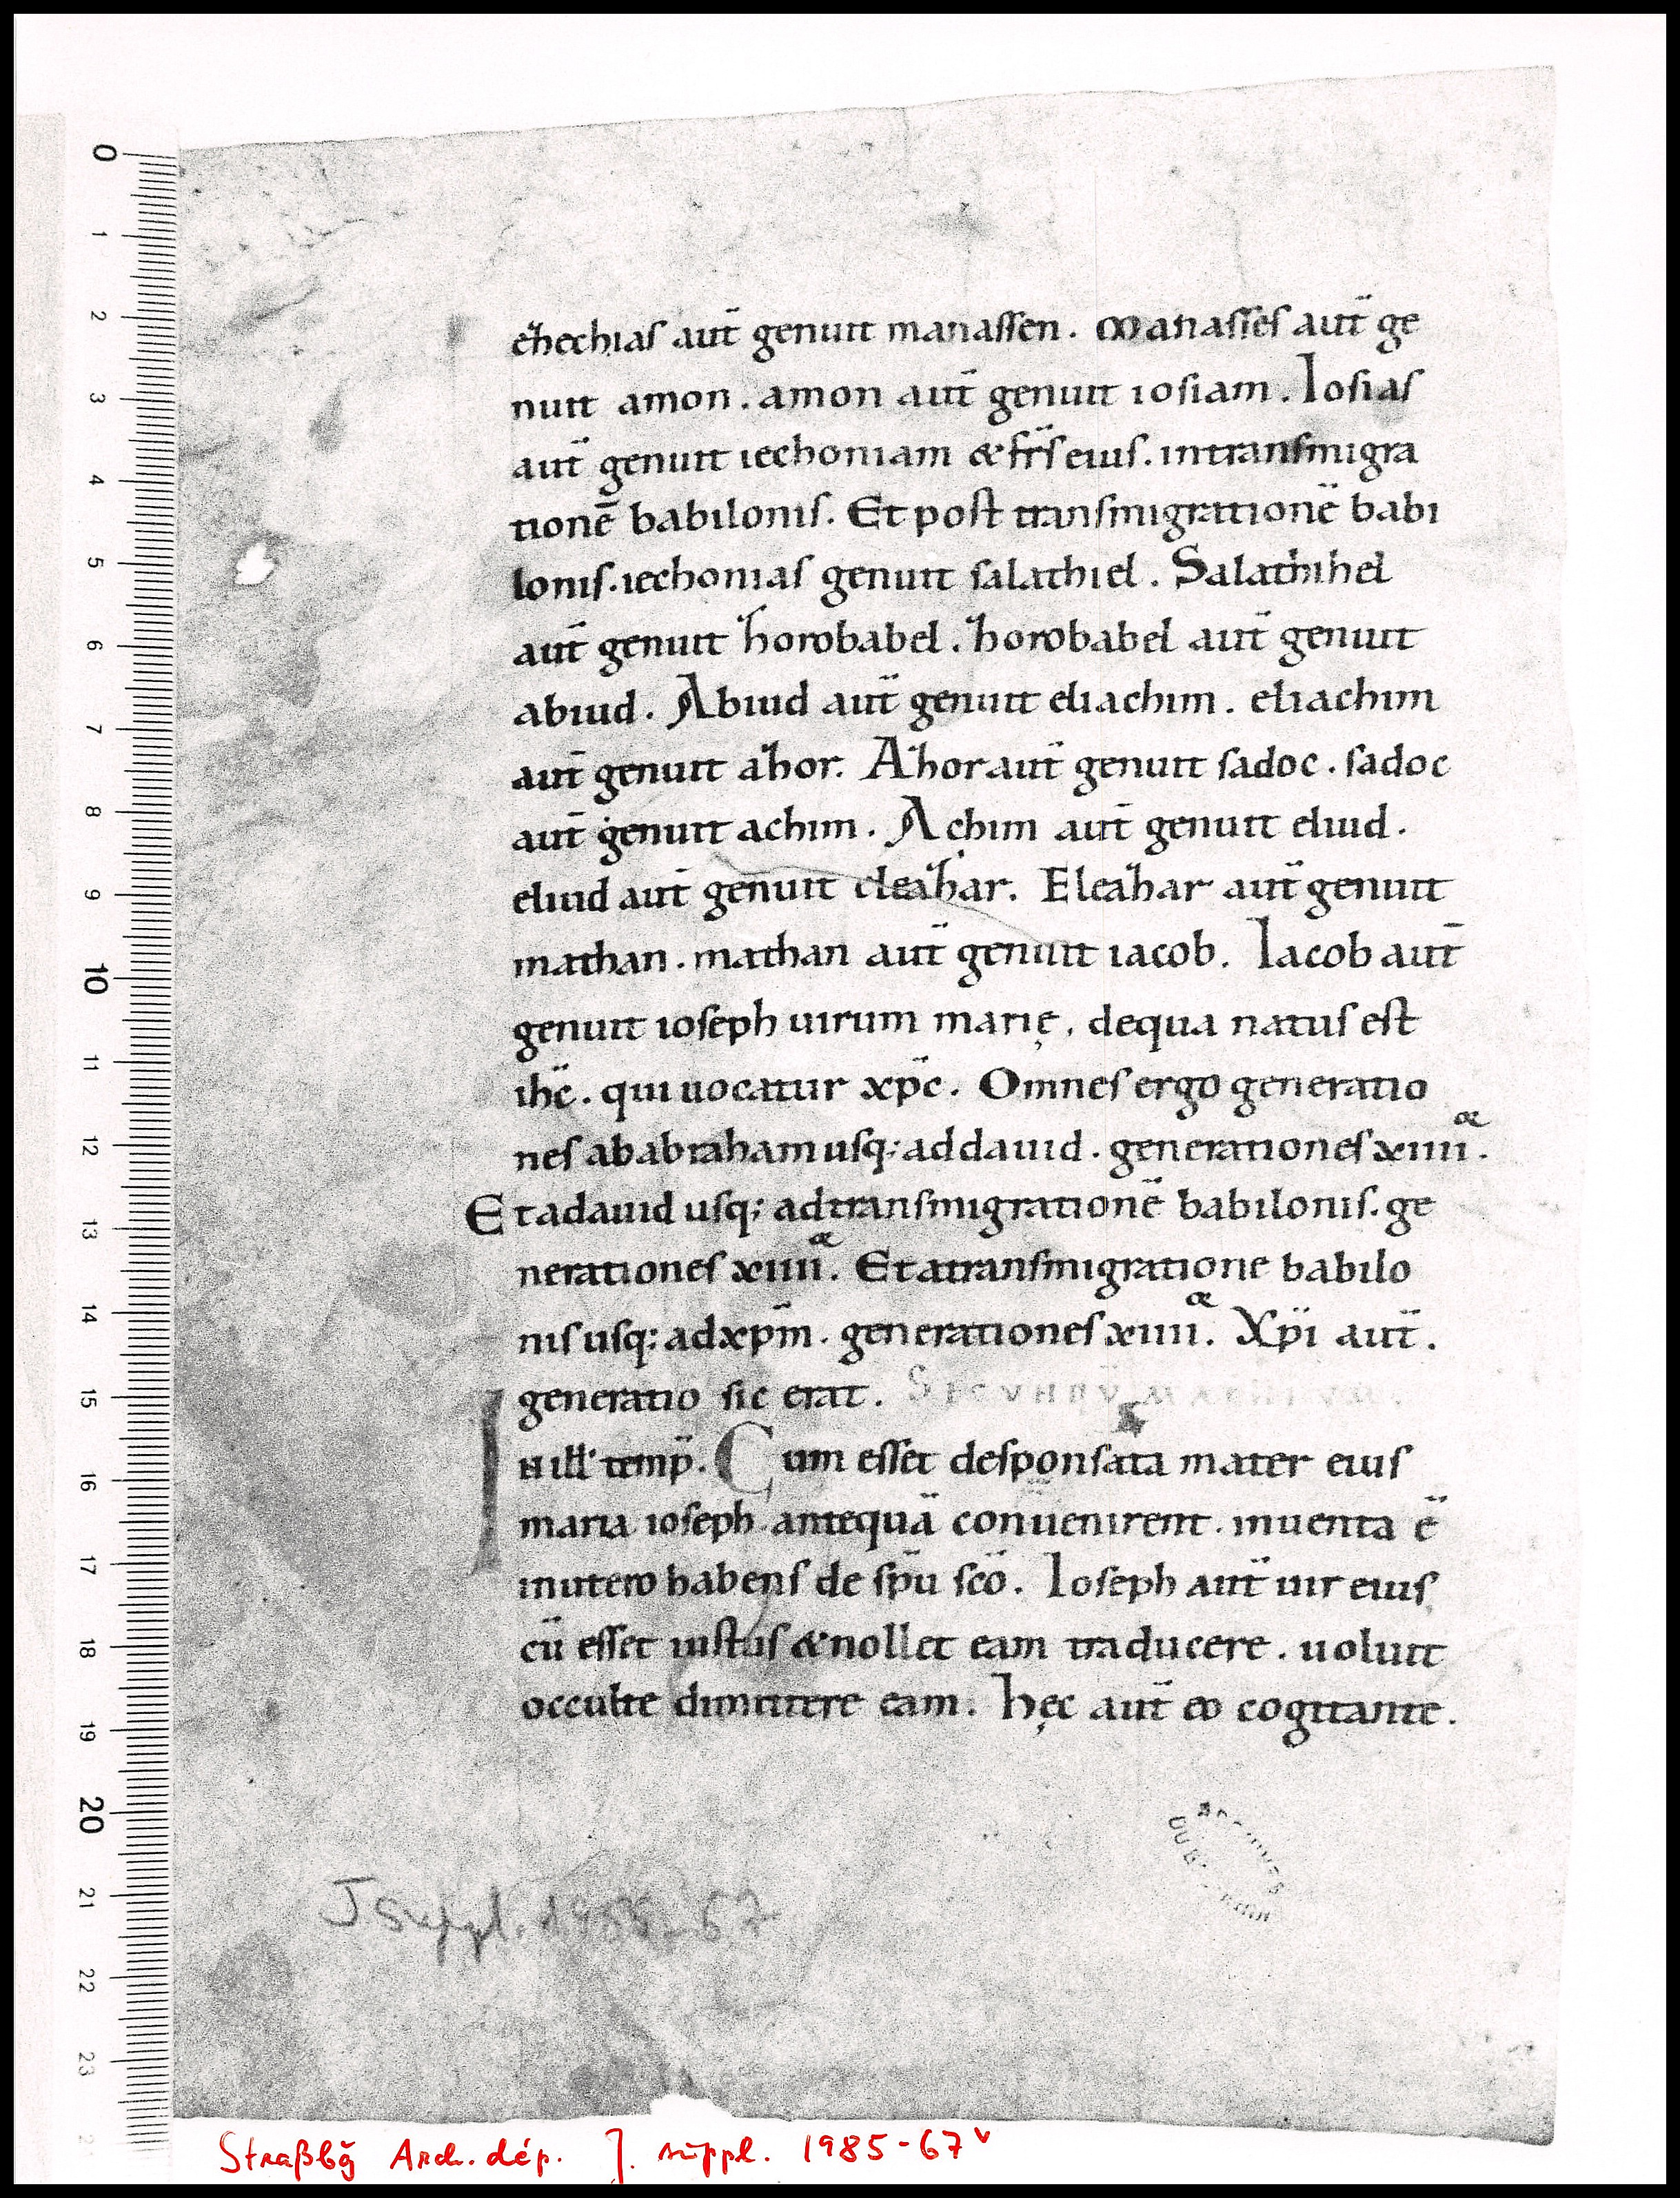 ezechias aut̄ genuit manassen. Manasses aut̄ ge
nuit amon. amon aut̄ genuit iosiam. Iosias
aut̄ genuit iechoniam & fr̄s eius. intransmigra
tionē babilonis. Et post transmigrationē babi
lonis. iechonias genuit salathiel. Salathihel
aut̄ genuit zorobabel. zorobabel aut̄ genuit
abiud. Abiud aut̄ genuit eliachim. eliachim
aut̄ genuit azor. Azor aut̄ genuit sadoc. sadoc
aut̄ genuit achim. Achim aut̄ genuit eliud.
eliud aut̄ genuit eleazar. Eleazar aut̄ genuit
mathan. mathan aut̄ genuit iacob. Iacob aut̄
genuit ioseph uirum marię, dequa natus est
ih̄c. qui uocatur xp̄c. Omnes ergo generatio
nes ababraham usq; addauid. generationes xiiii.
æ
Et adauid usq; adtransmigrationē babilonis. ge
nerationes xiiii. Et atransmigratione babilo
æ
nis usq; adxp̄m. generationes xiiii. Xp̄i aut̄.
æ
generatio sic erat. SECUNDUM
In ill' temp̄. Cum esset desponsata mater eius
maria ioseph. antequā conuenirent. inuenta ē
inutero habens de sp̄u sc̄o. Ioseph aut̄ uir eius
cū esset iustus & nollet eam traducere. uoluit
occulte dimittere eam. hęc aut̄ eo cogitante.
J Suppl. 1985-67
Straßbg Arch. dép. J. suppl. 1985-67v
0
1
2
3
4
5
6
7
8
9
10
11
12
13
14
15
16
17
18
19
20
21
22
23